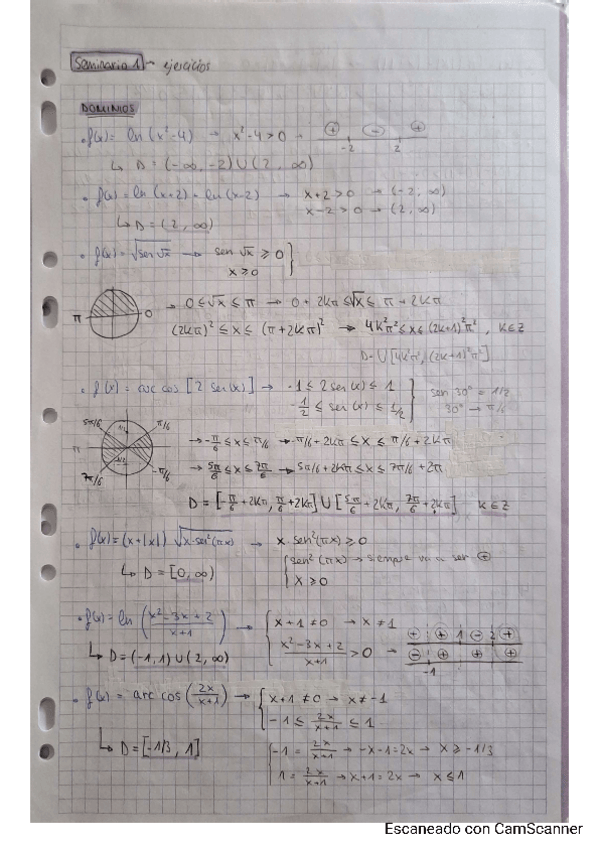 Seminario 1 - ejercicios
DOMINIOS
• f(x) = ln (x²-4) → x²-4>0 → ⊕ ⊖ ⊕
-2 2
↳ D = (-∞, -2) ∪ (2, ∞)
• f(x) = ln (x+2) + ln (x-2) → x+2>0 → (-2, ∞)
x-2>0 → (2, ∞)
↳ D = (2, ∞)
• f(x) = √sen √x → sen √x ≥ 0
x ≥ 0
π 0 → 0 ≤ √x ≤ π → 0 + 2kπ ≤ √x ≤ π + 2kπ
(2kπ)² ≤ x ≤ (π + 2kπ)² → 4k²π² ≤ x ≤ (2k+1)²π², k∈Z
D = ∪ [4k²π², (2k+1)²π²]
• f(x) = arc cos [2 sen(x)] → -1 ≤ 2 sen(x) ≤ 1 sen 30° = 1/2
-1/2 ≤ sen (x) ≤ 1/2 30° → π/6
5π/6 1/2 π/6
π → -π/6 ≤ x ≤ π/6 → -π/6 + 2kπ ≤ x ≤ π/6 + 2kπ
7π/6 -1/2 -π/6 → 5π/6 ≤ x ≤ 7π/6 → 5π/6 + 2kπ ≤ x ≤ 7π/6 + 2π
D = [-π/6 + 2kπ, π/6 + 2kπ] ∪ [5π/6 + 2kπ, 7π/6 + 2kπ] k∈Z
• f(x) = (x+|x|) √x·sen²(πx) → x·sen²(πx) ≥ 0
sen² (πx) → siempre va a ser ⊕
↳ D = [0, ∞) x ≥ 0
• f(x) = ln (x²-3x+2 / x+1) → x+1 ≠ 0 → x ≠ 1
x²-3x+2 / x+1 > 0 → ⊕ ⊕ 1 ⊖ 2 ⊕
⊖ ⊕ ⊕ ⊕
-1
↳ D = (-1, 1) ∪ (2, ∞)
• f(x) = arc cos (2x / x+1) → x+1 ≠ 0 → x ≠ -1
-1 ≤ 2x / x+1 ≤ 1
↳ D = [-1/3, 1] -1 = 2x / x+1 → -x-1=2x → x ≥ -1/3
1 = 2x / x+1 → x+1=2x → x ≤ 1
Escaneado con CamScanner